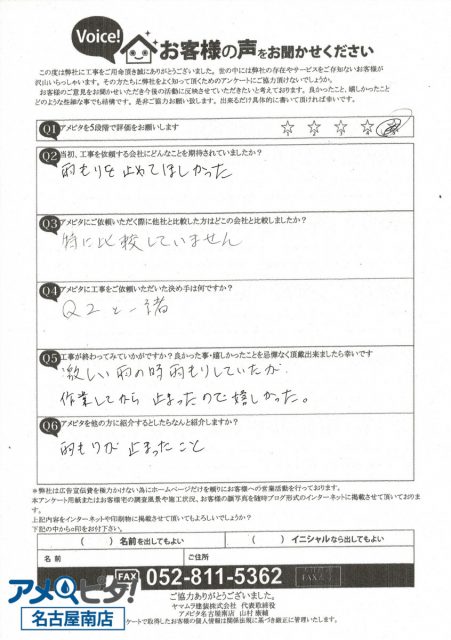 Voice!
お客様の声をお聞かせください
この度は弊社に工事をご用命頂き誠にありがとうございました。世の中には弊社の存在やサービスをご存知ないお客様が
沢山いらっしゃいます。その方たちに弊社をよく知って頂くためのアンケートにご協力頂けないでしょうか。
お客様のご意見をお聞かせいただき今後の活動に反映させていただきたいと考えております。良かったこと、嬉しかったこと
どのような些細な事でも結構です。是非ご協力お願い致します。出来るだけ具体的に書いて頂ければ幸いです。
Q1 アメピタを5段階で評価をお願いします
☆ ☆ ☆ ☆
Q2 当初、工事を依頼する会社にどんなことを期待されていましたか?
雨もりを止めてほしかった
Q3 アメピタにご依頼いただく際に他社と比較した方はどこの会社と比較しましたか?
特に比較していません
Q4 アメピタに工事をご依頼いただいた決め手は何ですか?
Q2と一緒
Q5 工事が終わってみていかがですか?良かった事・嬉しかったことを忌憚なく頂戴出来ましたら幸いです
激しい雨の時雨もりしていたが
作業してから止まったので嬉しかった。
Q6 アメピタを他の方に紹介するとしたらなんと紹介しますか?
雨もりが止まったこと
※弊社は広告宣伝費を極力かけない為にホームページだけを頼りにお客様への営業活動を行っております。
本アンケート用紙またはお客様宅の調査風景や施工状況、お客様の顔写真を随時ブログ形式のインターネットに掲載させて頂いております。
上記内容をインターネットや印刷物に掲載させて頂いてもよろしいでしょうか?
下記の中から○印をお付下さい。
( )名前を出してもよい ( )イニシャルなら出してもよい
名前 ご住所
FAX 052-811-5362 FAX
アメピタ!
名古屋南店
ご協力ありがとうございました。
ヤマムラ建装株式会社 代表取締役
アメピタ名古屋南店 山村 康輔
ケートで取得したお客様の個人情報は関係法規に基づき厳正に管理いたします。